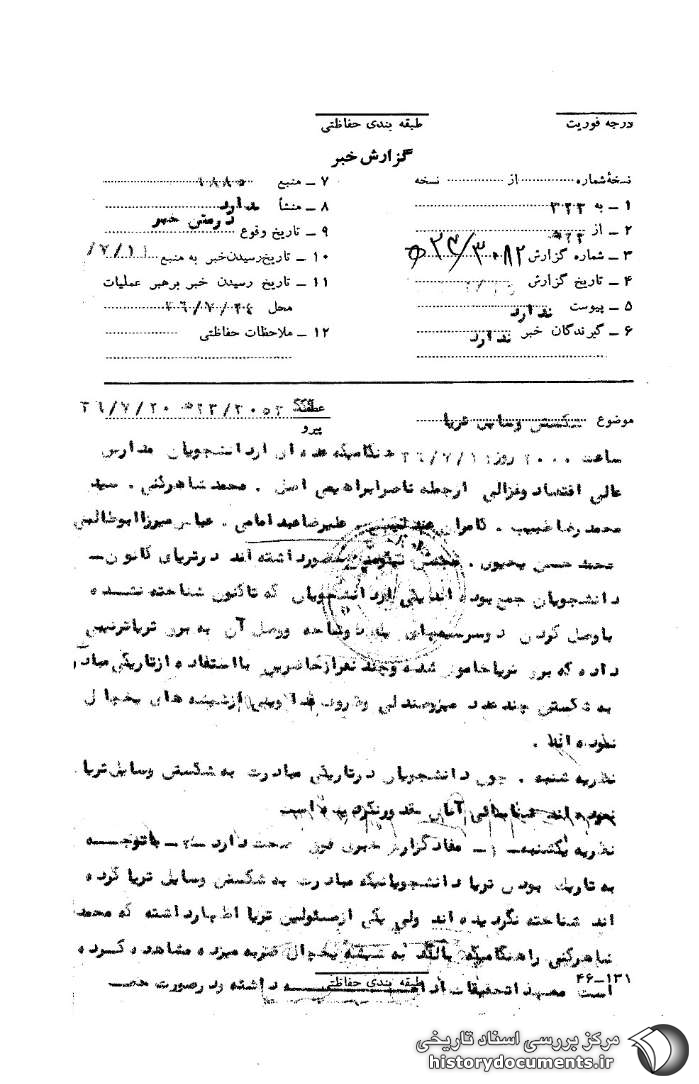 درجه فوریت
طبقه بندی حفاظتی
گزارش خبر
نسخهٔ شماره از نسخه
۱ ـ به ۳۲۲
۲ ـ از
۳ ـ شماره گزارش
۴ ـ تاریخ گزارش
۵ ـ پیوست ندارد
۶ ـ گیرندگان خبر ندارد
۷ ـ منبع
۸ ـ منشأ ندارد
۹ ـ تاریخ وقوع درمتن خبر
۱۰ ـ تاریخ رسیدن خبر به منبع
۱۱ ـ تاریخ رسیدن خبر برهبر عملیات
محل
۱۲ ـ ملاحظات حفاظتی
موضوع شکستن وسایل تریا
عطف
پیرو
ساعت ۲۰۰۰ روز هنگامیکه عده ای ازدانشجویان مدارس
عالی اقتصاد وغزالی ازجمله ناصرابراهیمی اصل . محمد شاهرکنی . سید
محمد رضا کامران علیرضا عبدامامی . عباس میرزاابوطالبی
محمد حسن یحیوی . محسن داشته اند درتریای کانون ـ
دانشجویان جمع بوده اند یکی ازدانشجویان که تاکنون شناخته نشده
باوصل کردن دوسرسیمهای ووصل آن به برق تریاترتیبی
داده که برق تریاخاموش شده وچند نفرازحاضرین بااستفاده ازتاریکی مبادرت
به شکستن چند عدد میزوصندلی وظروف غذا ویکی ازشیشه های یخچال
نموده اند .
نظریه شنبه . چون دانشجویان درتاریکی مبادرت به شکستن وسایل تریا
نموده اند شناسائی آنان مقدورنگردیده است
نظریه یکشنبه ـ ۱ ـ مفاد گزارش خبری فوق صحت دارد ۲ ـ باتوجه
به تاریک بودن تریا دانشجویانیکه مبادرت به شکستن وسایل تریا کرده
اند شناخته نگردیده اند ولی یکی ازمسئولین تریا اظهارداشته که محمد
شاهرکنی راهنگامیکه بالگد به شیشه یخچال ضربه میزده مشاهده کرده
است تحقیقات داشته ودرصورت
طبقه بندی حفاظتی
۴۶-۱۳۱
مرکز بررسی اسناد تاریخی
historydocuments.ir